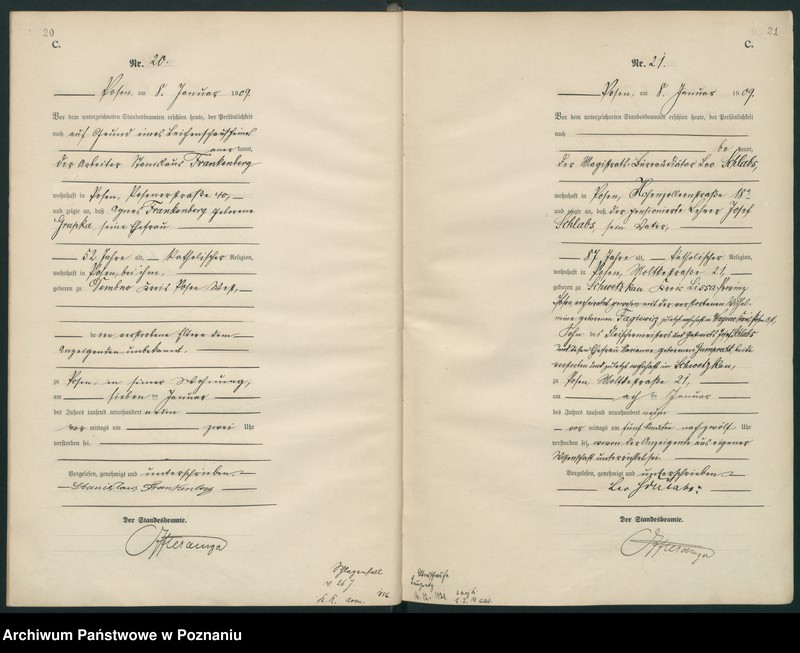 20
C.
Nr. 20.
Posen, am 8. Januar 1909.
Vor dem unterzeichneten Standesbeamten erschien heute, der Persönlichkeit
nach auf Grund eines Leichenschauscheins
anerkannt,
der Arbeiter Stanislaus Frankenberg
wohnhaft in Posen, Posenerstraße 40,
und zeigte an, daß Agnes Frankenberg geborene
Grupka, seine Ehefrau
52 Jahre alt, katholischer Religion,
wohnhaft in Posen, bei ihm,
geboren zu Dembno Kreis Posen West,
deren verstorbene Eltern dem
Anzeigenden unbekannt,
zu Posen, in seiner Wohnung,
am sieben ten Januar
des Jahres tausend neunhundert neun
vor mittags um zwei Uhr
verstorben sei.
Vorgelesen, genehmigt und unterschrieben
Stanislaus Frankenberg
Der Standesbeamte.
21
C.
Nr. 21.
Posen, am 8. Januar 1909.
Vor dem unterzeichneten Standesbeamten erschien heute, der Persönlichkeit
nach
be kannt,
der Magistrats-Bureaudiätar Leo Schlabs,
wohnhaft in Posen, Hohenzollernstraße 18a
und zeigte an, daß der pensionierte Lehrer Josef
Schlabs, sein Vater,
87 Jahre alt, katholischer Religion,
wohnhaft in Posen, Moltkestraße 21,
geboren zu Schwetzkau Kreis Lissa, Provinz
Posen, verheiratet gewesen mit der verstorbenen Wilhel-
mine geborenen zuletzt wohnhaft in
Sohn des Fleischermeisters Josef Schlabs
und dessen Ehefrau Marianne geborenen beide
verstorben und zuletzt wohnhaft in Schwetzkau,
zu Posen Moltkestraße 21,
am ach ten Januar
des Jahres tausend neunhundert neun
vor mittags um fünf Minuten nach zwölf Uhr
verstorben sei, wovon der Anzeigende aus eigener
Wissenschaft unterrichtet sei.
Vorgelesen, genehmigt und unterschrieben
Leo Schlabs.
Der Standesbeamte.
Archiwum Państwowe w Poznaniu